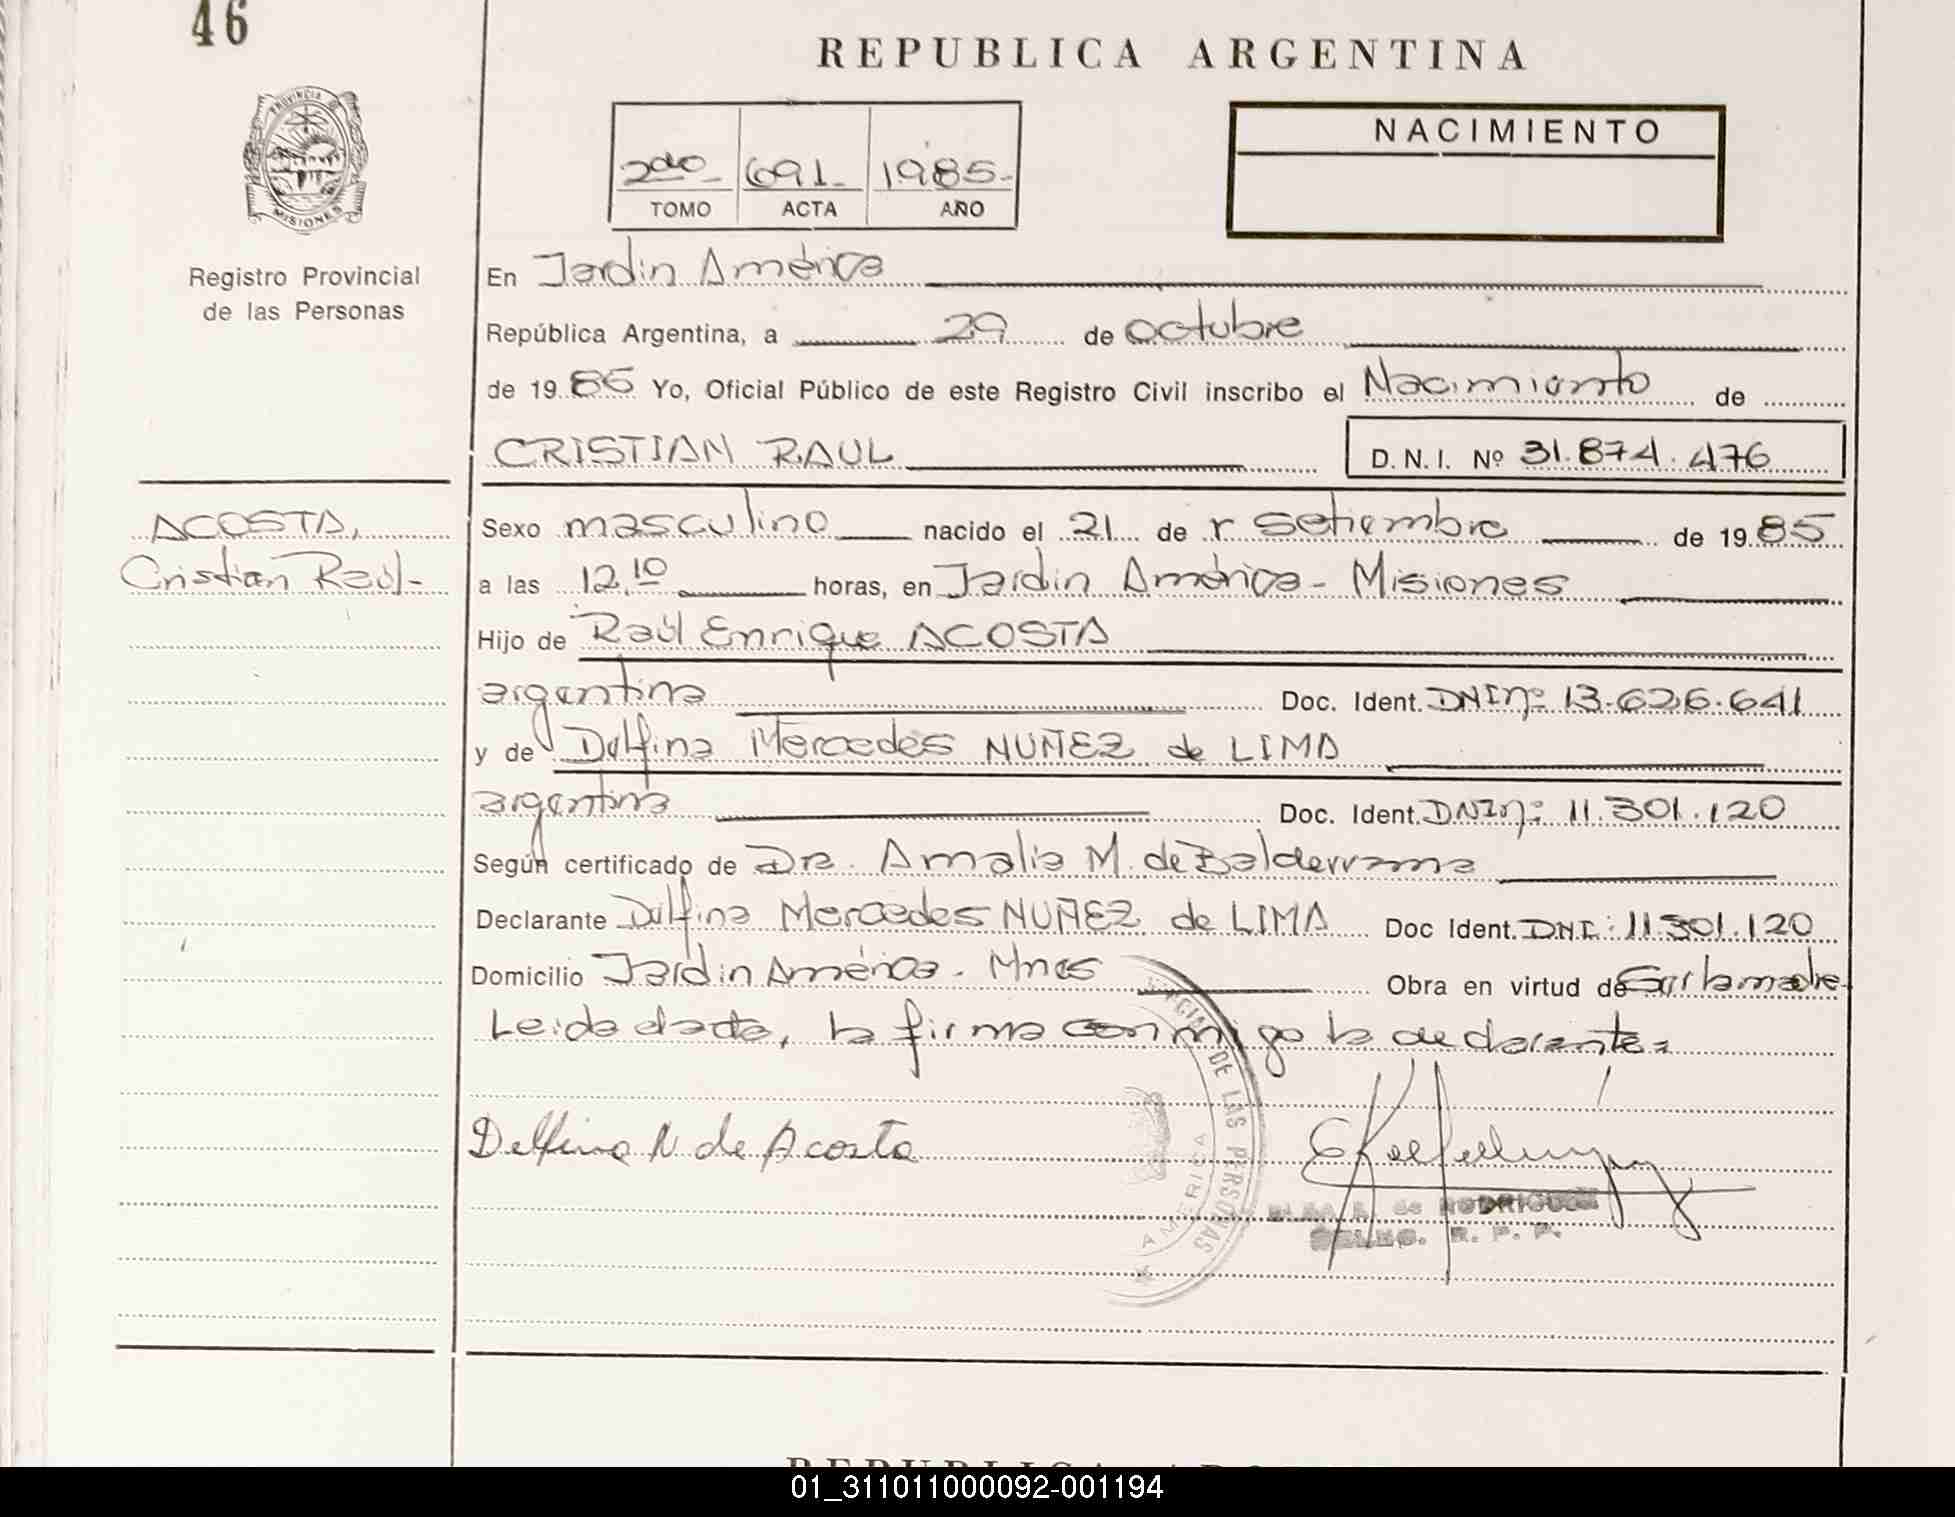 46
REPUBLICA ARGENTINA
PROVINCIA DE
MISIONES
Registro Provincial
de las Personas
2do 691 1985
TOMO ACTA AÑO
NACIMIENTO
En Jardin América
República Argentina, a 29 de octubre
de 19 85 Yo, Oficial Público de este Registro Civil inscribo el Nacimiento de
CRISTIAN RAUL D.N.I. Nº 31.874.476
ACOSTA,
Cristian Raúl-
Sexo masculino nacido el 21 de r setiembre de 19 85
a las 12,10 horas, en Jardin América - Misiones
Hijo de Raúl Enrique ACOSTA
argentina Doc. Ident. DNI nº 13.626.641
y de Delfina Mercedes NUÑEZ de LIMA
argentina Doc. Ident. DNI nº: 11.301.120
Según certificado de Dra. Amalia M. de Balderrama
Declarante Delfina Mercedes NUÑEZ de LIMA Doc Ident. DNI: 11.301.120
Domicilio Jardin América - Mnes Obra en virtud de Ser la madre-
Leida el acta, la firma conmigo la declarante.
Delfina N de Acosta
DE LAS PERSONAS
AMERICA
de RODRIGUEZ
R. P. P.
01_311011000092-001194